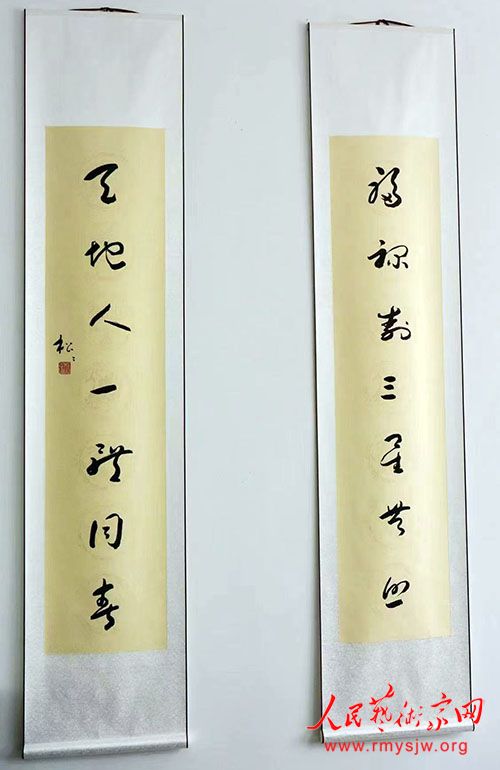 福禄寿三星共照
天地人一体同春
松
人民艺术家网
www.rmysjw.org